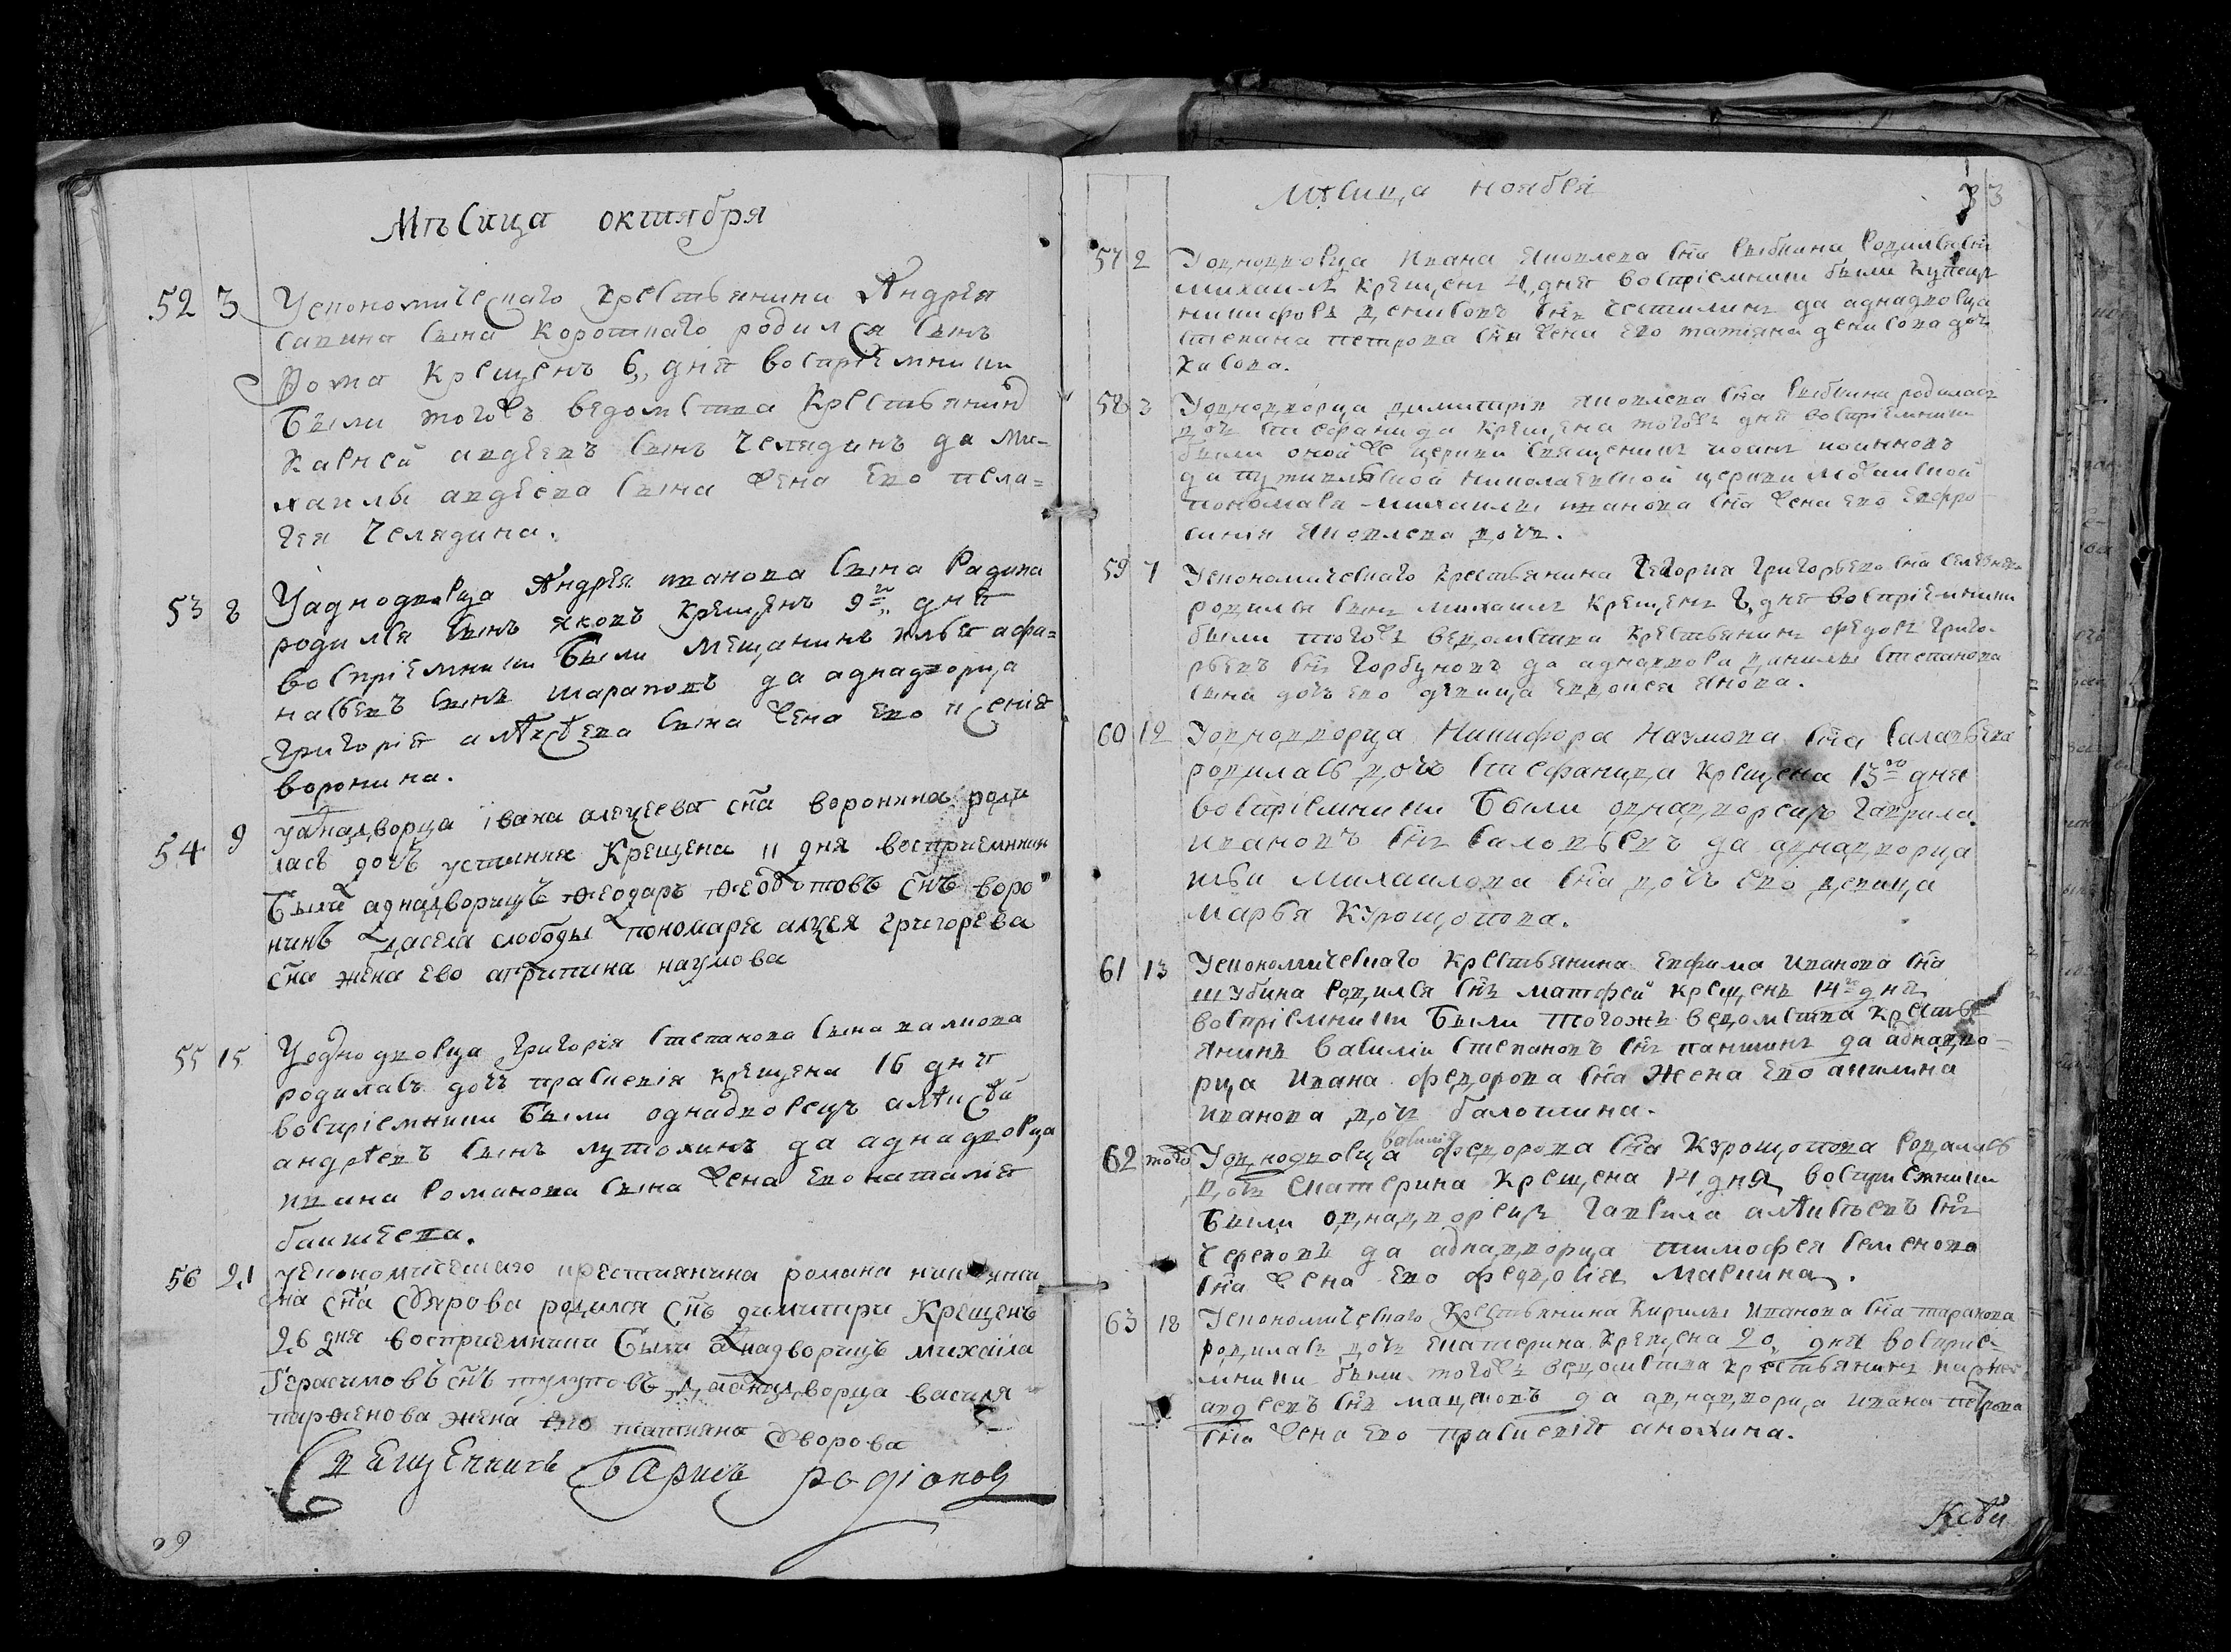 Мѣсица октября
52 3 Уекономическаго крестьянина Андрея
савина сына Короткаго родился сынъ
Фома крещенъ 6, дня воспріемники
были тогожъ ведомства крестьянинъ
авдеевъ сынъ Челядинъ да ми-
хаилы авдеева сына жена ево пела=
гея Челядина.
53 8 Уаднодворца Андрея иванова сына Радина
родился сынъ яковъ крещенъ 9го дня
воспріемники были мещанинъ илья афа=
насьевъ сынъ шараповъ да аднадворца
григорія алѣксѣева сына жена ево ксенія
воронина.
54 9 уаднадворца івана алексеева сна воронина роди
лась дочь устиния Крещена 11 дня восприемники
были аднадворецъ феодаръ снъ воро
нинъ слободы пономаря григорева
сна жена ево агрипина наумова
55 15 Уоднодворца григорія степанова сына
родилась дочь праскевія крещена 16 дня
воспріемники были однадворецъ алѣксѣй
андрѣевъ сынъ лутохинъ да аднадворца
ивана романова сына жена ево наталія
56 21 уекономическаго крестиянина романа
сна родился снъ димитри Крещенъ
26 дня восприемники были аднадворицъ михаила
Герасимовъ снъ да аднадворца василя
парфенова жена ево татияна
Священникъ Барисъ родіоновъ
29
Мѣсица ноября
33
57 2 Уоднодворца Ивана Яковлева сна Рыбкина родился снъ
михаилъ крещенъ 4, дня воспріемники были купецъ
никифоръ денисовъ снъ да аднадворца
степана петрова сна жена ево татіяна денисова дочь
58 3 Уоднодворца димитрія яковлева сна Рыбкина родилась
дочь стефанида крещена тогожъ дня воспріемники
были оной же церкви священникъ иоанъ
да путивльской николаевской церкви
пономаря михаилы иванова сна жена ево евфро
синія яковлева дочь.
59 7 Уекономическаго крестьянина Егория григорьева сна
родился сынъ михаилъ крещенъ 8, дня воспріемники
были тогожъ ведомства крестьянинъ федоръ григо-
рьевъ снъ Горбуновъ да аднадворца данилы степанова
сына дочь ево девица евдокея
60 12 Уоднодворца Никифора Наумова сна
родилась дочь стефанида крещена 13го дня
воспріемники были однадворецъ гаврила
ивановъ снъ да аднадворца
ильи михаилова сна дочь ево девица
марья Курощопова.
61 13 Уекономическаго крестьянина ефима иванова сна
шубина родился снъ матфей крещенъ 14го дня
воспріемники были тогожъ ведомства крестья
янинъ василіи степановъ снъ паншинъ да аднадво=
рца ивана федорова сна жена ево акилина
иванова дочь
62 того Уоднодворца василія федорова сна Курощопова родилась
дочь екатерина крещена 14 дня, воспріемники
были однадворецъ гаврила алѣксѣевъ снъ
Череповъ да аднадворца тимофея семенова
сна жена ево федосія
63 18 Уекономическаго крестьянина Кирилы иванова сна таракова
родилась дочь екатерина крещена 20, дня воспріе=
мники были тогожъ ведомства крестьянинъ
авдеевъ снъ да аднадворца ивана петрова
сна жена ево праскевія анохина.